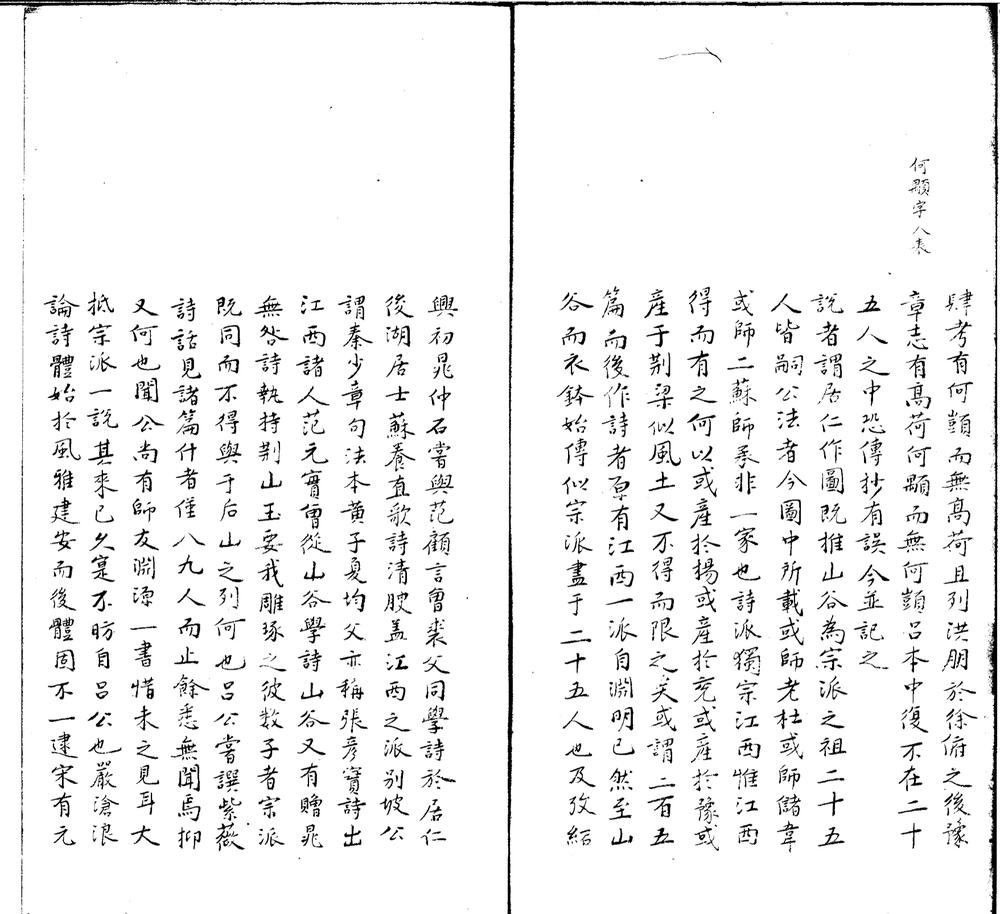 何顒字人表
肆考有何顗而無高荷且列洪朋於徐俯之後豫
章志有高荷何顒而無何顗呂本中復不在二十
五人之中恐傳抄有誤今並記之
說者謂居仁作圖既推山谷為宗派之祖二十五
人皆嗣公法者今圖中所載或師老杜或師儲韋
或師二蘇師承非一家也詩派獨宗江西惟江西
得而有之何以或產於揚或產於兗或產於豫或
產于荆梁似風土又不得而限之矣或謂二百五
篇而後作詩者原有江西一派自淵明已然至山
谷而衣鉢始傳似宗派盡于二十五人也及攷紹
興初晁仲石嘗與范顧言曾裘父同學詩於居仁
後湖居士蘇養直歌詩清腴盖江西之派别坡公
謂秦少章句法本黄子夏均父亦稱張彦實詩出
江西諸人范元實曾從山谷學詩山谷又有贈晁
無咎詩執持荆山玉要我雕琢之彼数子者宗派
既同而不得與于后山之列何也呂公嘗譔紫薇
詩話見諸篇什者僅八九人而止餘悉無聞焉抑
又何也聞公尚有師友淵源一書惜未之見耳大
抵宗派一說其来已久寔不昉自呂公也嚴滄浪
論詩體始於風雅建安而後體固不一逮宋有元